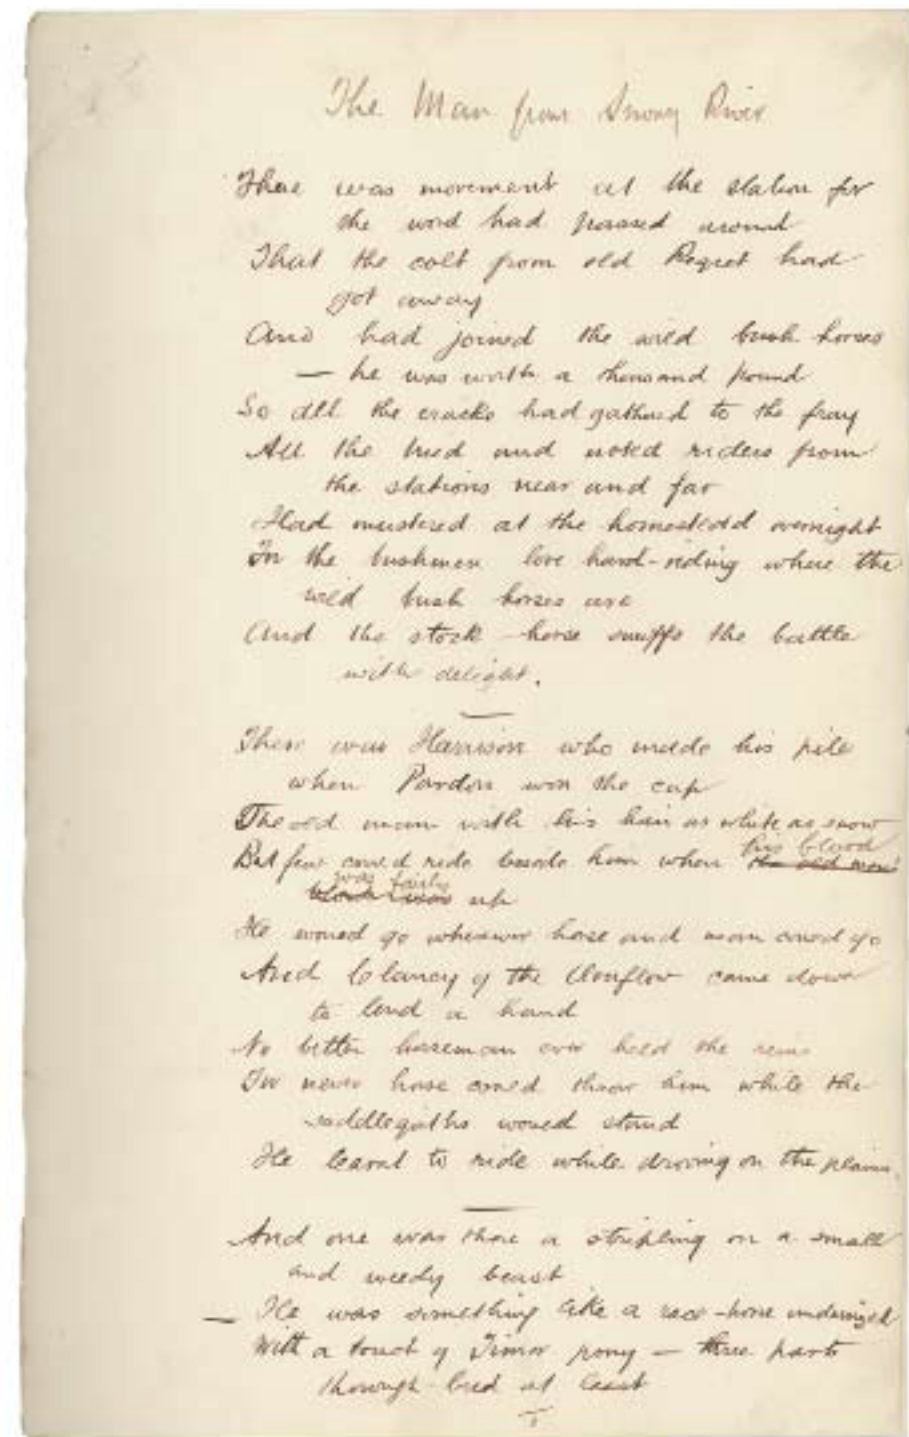 The Man from Snowy River
There was movement at the station for
the word had passed around
That the colt from old Regret had
got away
And had joined the wild bush horses
— he was worth a thousand pound
So all the cracks had gathered to the fray
All the tried and noted riders from
the stations near and far
Had mustered at the homestead overnight
For the bushmen love hard-riding where the
wild bush horses are
And the stock-horse snuffs the battle
with delight.
There was Harrison who made his pile
when Pardon won the cup
The old man with his hair as white as snow
But few could ride beside him when his blood
the old man's
was fairly
blood was up
He would go wherever horse and man could go
And Clancy of the Overflow came down
to lend a hand
No better horseman ever held the reins
For never horse could throw him while the
saddlegirths would stand
He learnt to ride while droving on the plains.
And one was there a stripling on a small
and weedy beast
— He was something like a race-horse undersized
With a touch of Timor pony — three parts
thorough-bred at least